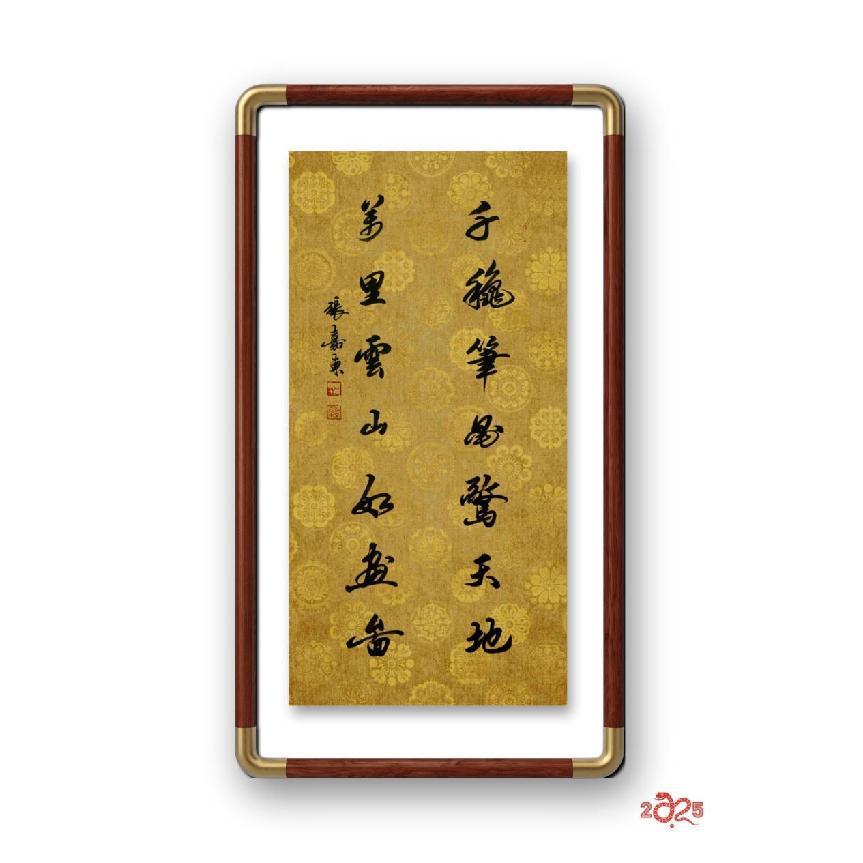 千龝筆墨驚天地
萬里雲山如畫圖
張嘉東
2025